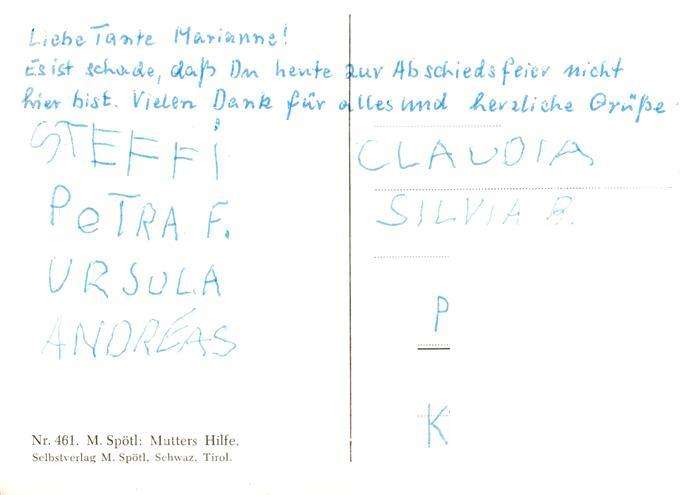 Liebe Tante Marianne!
Es ist schade, daß Du heute zur Abschiedsfeier nicht
hier bist. Vielen Dank für alles und herzliche Grüße.
STEFFi
PeTRA F.
URSULA
ANDRÉAS
CLAUDIA
SILVIA B.
P
K
Nr. 461. M. Spötl: Mutters Hilfe.
Selbstverlag M. Spötl, Schwaz, Tirol.